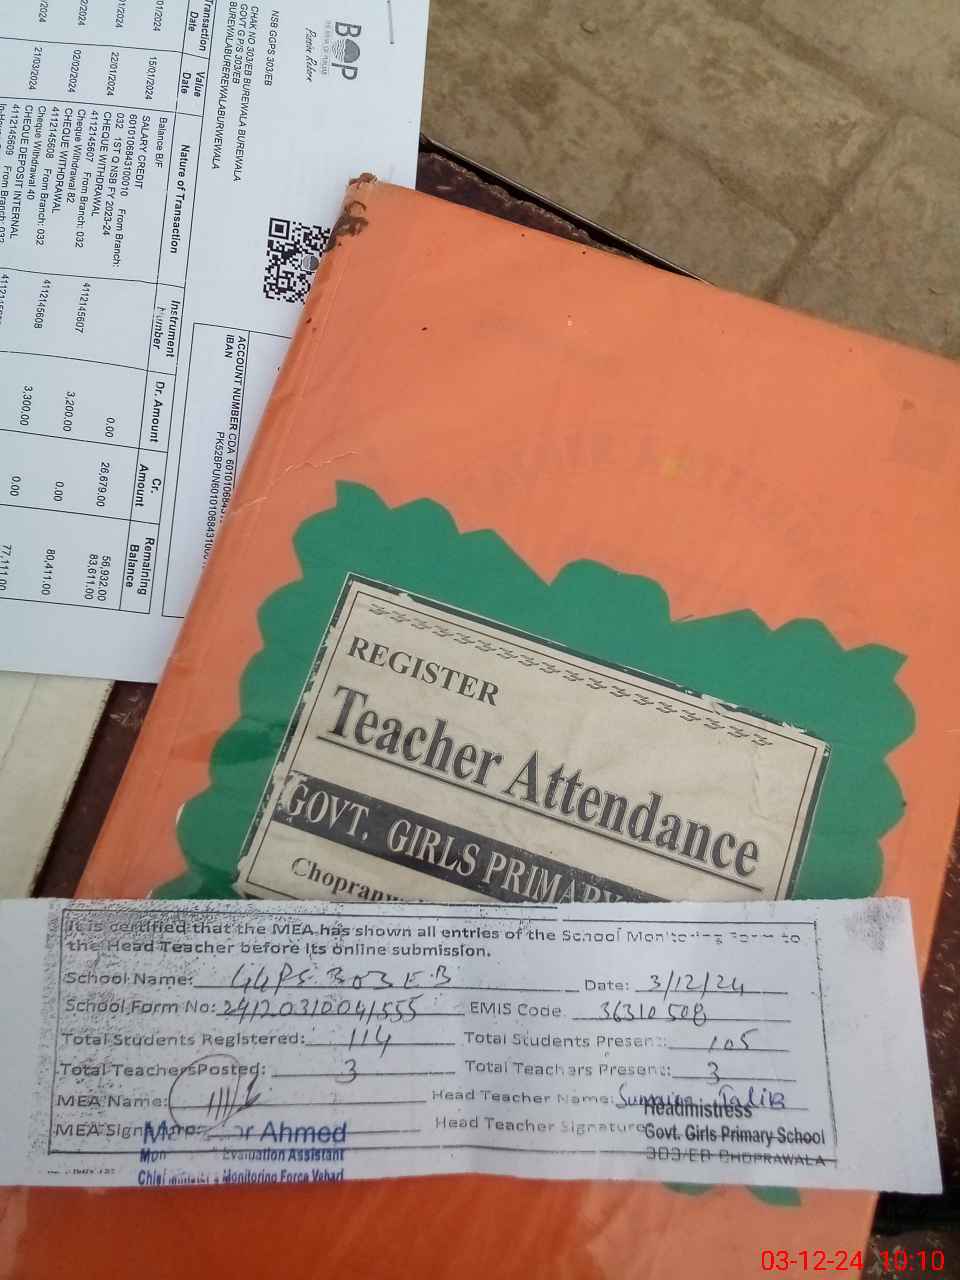 BOP
THE BANK OF PUNJAB
NSB GGPS 303/EB
CHAK NO 303/EB BUREWALA BUREWALA
GOVT G P/S 303/EB
BUREWALABUREREWALABURWEWALA
ACCOUNT NUMBER CDA
IBAN
Transaction Date
Value Date
Nature of Transaction
Instrument Number
Dr. Amount
Cr. Amount
Remaining Balance
Balance B/F 56,932.00
01/2024 15/01/2024 SALARY CREDIT 0.00 26,679.00 83,611.00
601010684310010 From Branch:
032 1ST Q NSB FY 2023-24
01/2024 22/01/2024 CHEQUE WITHDRAWAL 4112145607 3,200.00 0.00 80,411.00
4112145607 From Branch: 032
Cheque Withdrawal 82
02/02/2024 CHEQUE WITHDRAWAL 4112145608 3,300.00 0.00 77,111.00
4112145608 From Branch: 032
Cheque Withdrawal 40
21/03/2024 CHEQUE DEPOSIT INTERNAL
4112145609 From Branch: 032
REGISTER
Teacher Attendance
GOVT. GIRLS PRIMARY
It is certified that the MEA has shown all entries of the School Monitoring Form to
the Head Teacher before its online submission.
School Name: GGPS 303 E.B Date: 3/12/24
School Form No: 24120310041555 EMIS Code 36310508
Total Students Registered: 114 Total Students Present: 105
Total TeachersPosted: 3 Total Teachers Present: 3
MEA Name: Head Teacher Name: Talib
MEA Sign Head Teacher Signature
Ahmed
Evaluation Assistant
Chief Monitoring Force Vehari
Headmistress
Govt. Girls Primary School
303/EB CHOPRAWALA
03-12-24 10:10